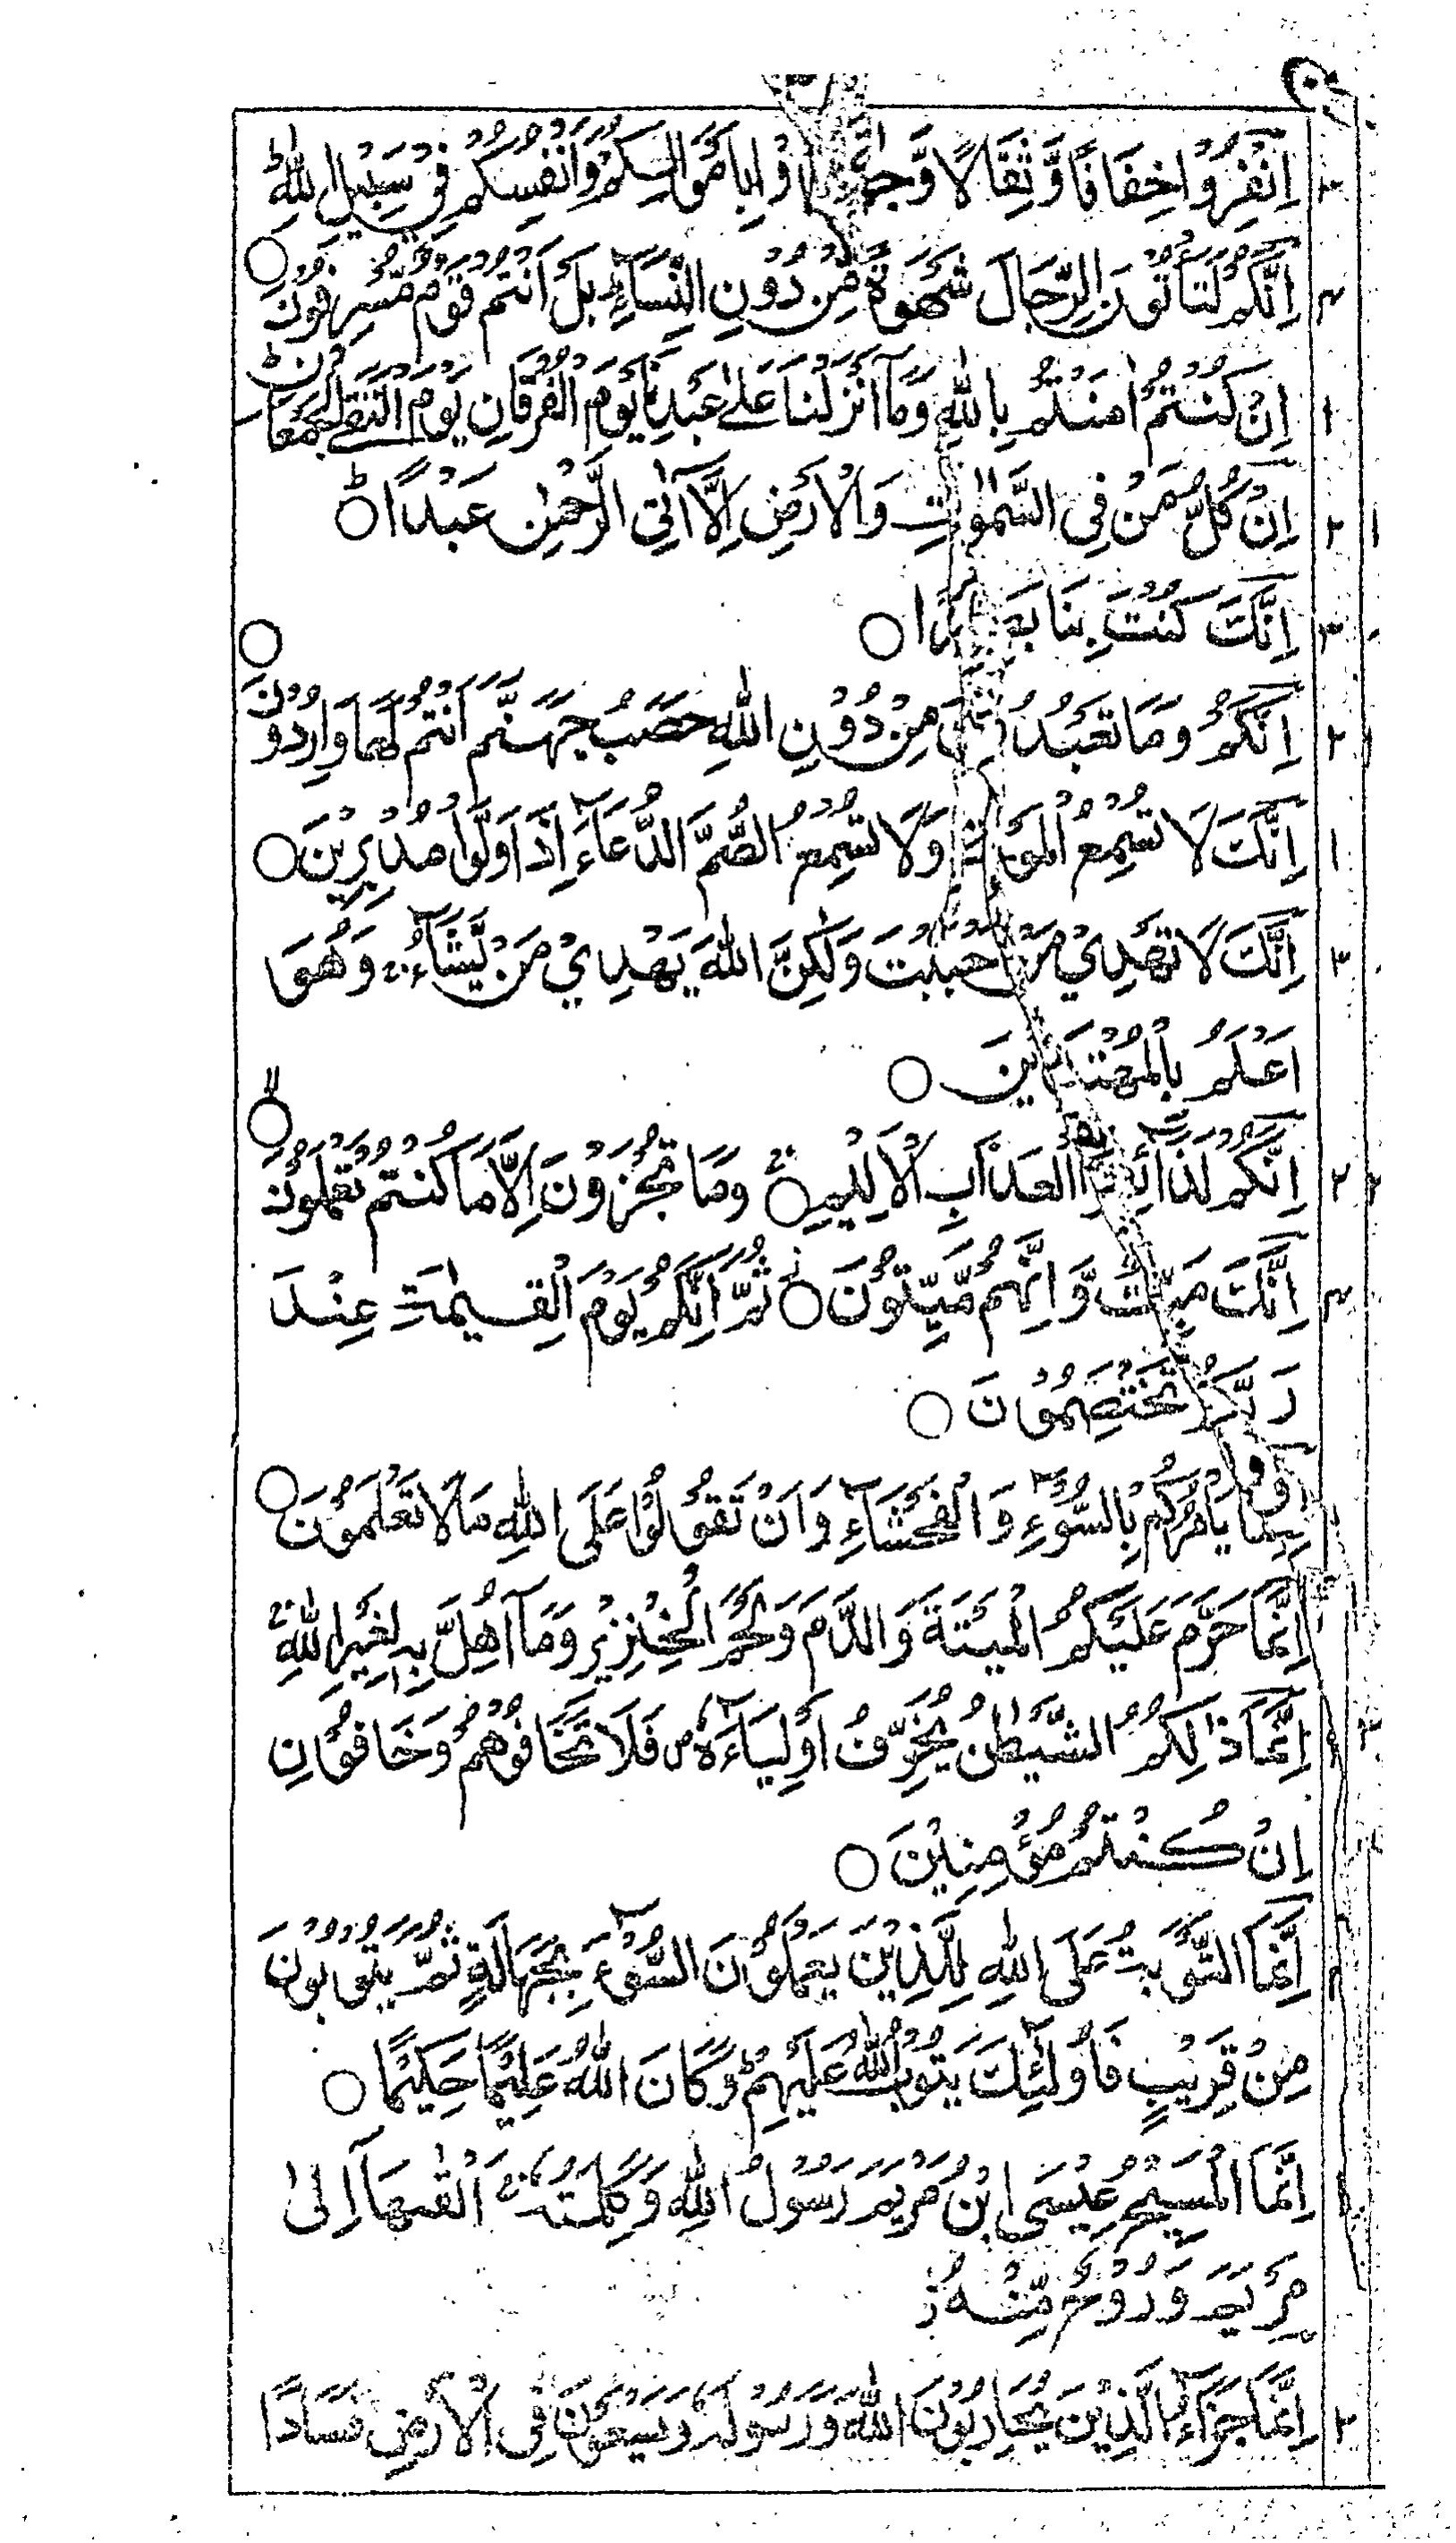 اِنْفِرُوْا خِفَافًا وَّثِقَالًا وَّجَاهِدُوْا بِاَمْوَالِكُمْ وَاَنْفُسِكُمْ فِيْ سَبِيْلِ اللّٰهِ ط
اِنَّكُمْ لَتَاْتُوْنَ الرِّجَالَ شَهْوَةً مِّنْ دُوْنِ النِّسَآءِ بَلْ اَنْتُمْ قَوْمٌ مُّسْرِفُوْنَ ○
اِنْ كُنْتُمْ اٰمَنْتُمْ بِاللّٰهِ وَمَآ اَنْزَلْنَا عَلٰى عَبْدِنَا يَوْمَ الْفُرْقَانِ يَوْمَ الْتَقَى الْجَمْعَانِ ط
اِنْ كُلُّ مَنْ فِى السَّمٰوٰتِ وَالْاَرْضِ اِلَّآ اٰتِى الرَّحْمٰنِ عَبْدًا ○ ط
اِنَّكَ كُنْتَ بِنَا بَصِيْرًا ○
اِنَّكُمْ وَمَا تَعْبُدُوْنَ مِنْ دُوْنِ اللّٰهِ حَصَبُ جَهَنَّمَ اَنْتُمْ لَهَا وَارِدُوْنَ ○
اِنَّكَ لَا تُسْمِعُ الْمَوْتٰى وَلَا تُسْمِعُ الصُّمَّ الدُّعَآءَ اِذَا وَلَّوْا مُدْبِرِيْنَ ○
اِنَّكَ لَا تَهْدِيْ مَنْ اَحْبَبْتَ وَلٰكِنَّ اللّٰهَ يَهْدِيْ مَنْ يَّشَآءُ ج وَهُوَ
اَعْلَمُ بِالْمُهْتَدِيْنَ ○
اِنَّكُمْ لَذَآئِقُوا الْعَذَابِ الْاَلِيْمِ ○ ج وَمَا تُجْزَوْنَ اِلَّا مَا كُنْتُمْ تَعْمَلُوْنَ ○ لا
اِنَّكَ مَيِّتٌ وَّاِنَّهُمْ مَّيِّتُوْنَ ○ ز ثُمَّ اِنَّكُمْ يَوْمَ الْقِيٰمَةِ عِنْدَ
رَبِّكُمْ تَخْتَصِمُوْنَ ○
اِنَّمَا يَاْمُرُكُمْ بِالسُّوْٓءِ وَالْفَحْشَآءِ وَاَنْ تَقُوْلُوْا عَلَى اللّٰهِ مَا لَا تَعْلَمُوْنَ ○
اِنَّمَا حَرَّمَ عَلَيْكُمُ الْمَيْتَةَ وَالدَّمَ وَلَحْمَ الْخِنْزِيْرِ وَمَآ اُهِلَّ بِهٖ لِغَيْرِ اللّٰهِ ج
اِنَّمَا ذٰلِكُمُ الشَّيْطٰنُ يُخَوِّفُ اَوْلِيَآءَهٗ ص فَلَا تَخَافُوْهُمْ وَخَافُوْنِ
اِنْ كُنْتُمْ مُّؤْمِنِيْنَ ○
اِنَّمَا التَّوْبَةُ عَلَى اللّٰهِ لِلَّذِيْنَ يَعْمَلُوْنَ السُّوْٓءَ بِجَهَالَةٍ ثُمَّ يَتُوْبُوْنَ
مِنْ قَرِيْبٍ فَاُولٰٓئِكَ يَتُوْبُ اللّٰهُ عَلَيْهِمْ ط وَكَانَ اللّٰهُ عَلِيْمًا حَكِيْمًا ○
اِنَّمَا الْمَسِيْحُ عِيْسَى ابْنُ مَرْيَمَ رَسُوْلُ اللّٰهِ وَكَلِمَتُهٗ ج اَلْقٰهَآ اِلٰى
مَرْيَمَ وَرُوْحٌ مِّنْهُ ز
اِنَّمَا جَزٰٓؤُا الَّذِيْنَ يُحَارِبُوْنَ اللّٰهَ وَرَسُوْلَهٗ وَيَسْعَوْنَ فِى الْاَرْضِ فَسَادًا